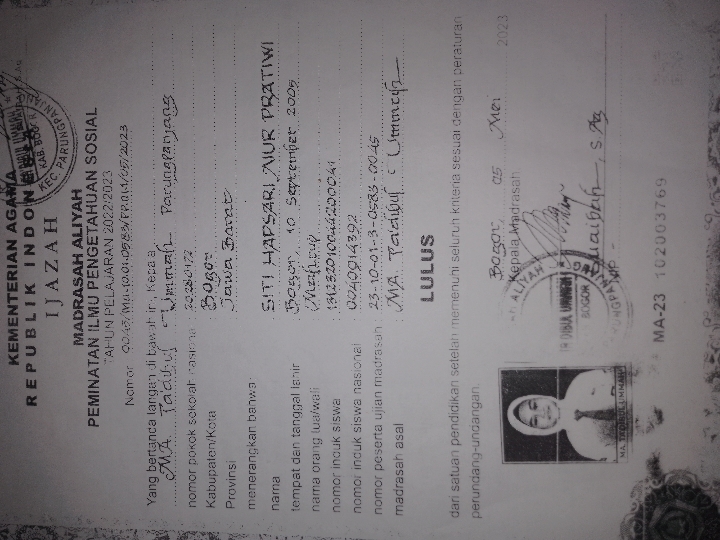 KEMENTERIAN AGAMA
REPUBLIK INDONESIA
IJAZAH
MADRASAH ALIYAH
PEMINATAN ILMU PENGETAHUAN SOSIAL
TAHUN PELAJARAN 2022/2023
Nomor
Yang bertanda tangan di bawah ini, Kepala
MA Tadibul Ummah Parungpanjang
nomor pokok sekolah nasional
Kabupaten/Kota : Bogor
Provinsi : Jawa Barat
menerangkan bahwa:
nama : SITI HAPSARI NUR PRATIWI
tempat dan tanggal lahir : Bogor, 10 September 2005
nama orang tua/wali
nomor induk siswa
nomor induk siswa nasional
nomor peserta ujian madrasah : 23-10-01-3-0583-0045
madrasah asal : MA Taddibul Ummah
LULUS
dari satuan pendidikan setelah memenuhi seluruh kriteria sesuai dengan peraturan
perundang-undangan.
Bogor, 05 Mei 2023
Kepala Madrasah
S.Ag
MA-23 102003769
KAB. BOGOR
KEC. PARUNGPANJANG
BOGOR